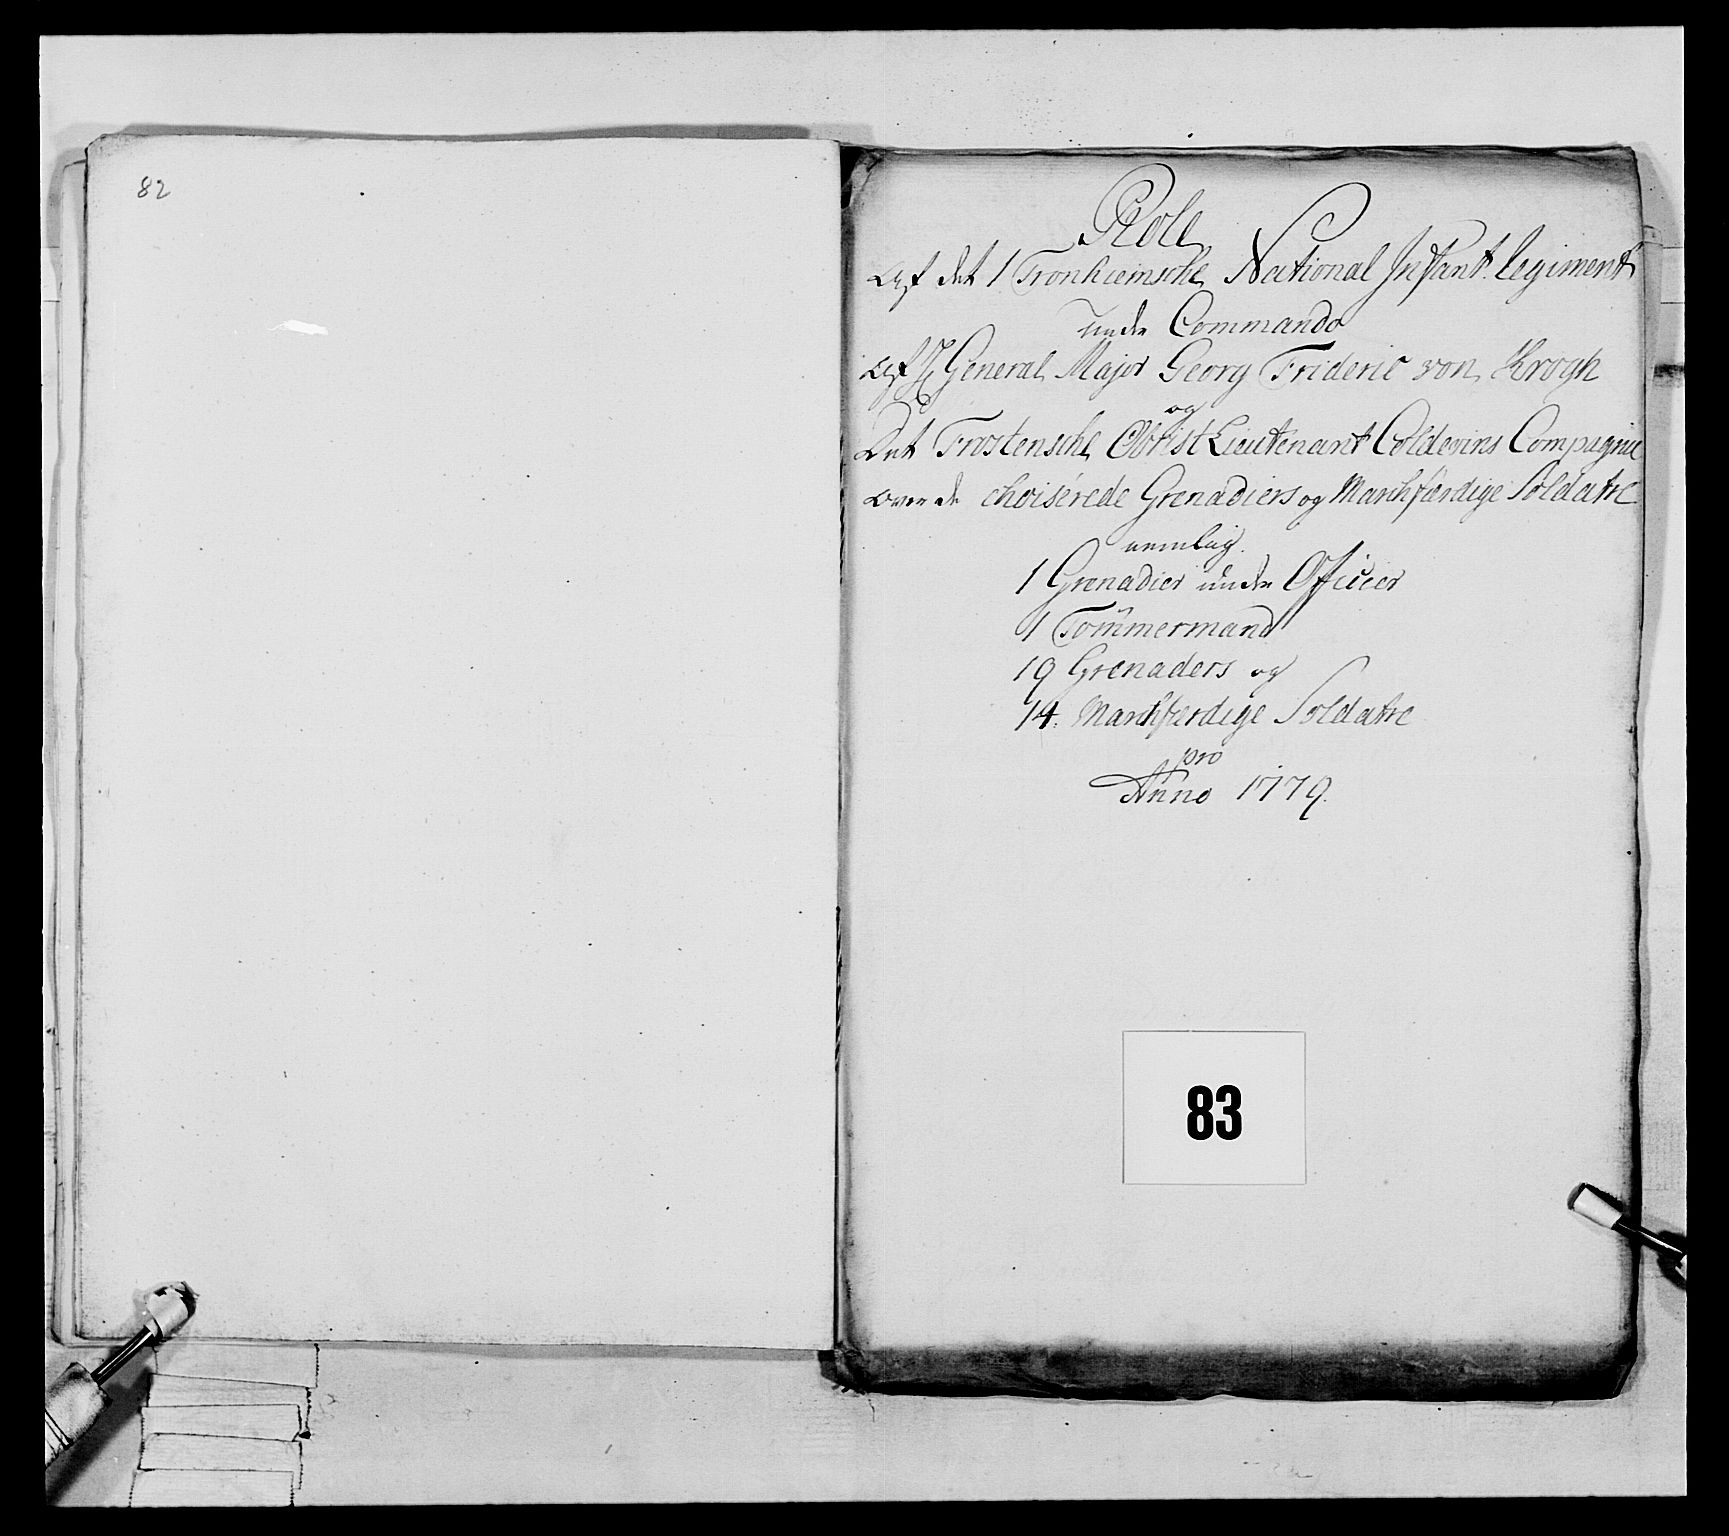 82
Roll
af det 1 Tronhiemske National Infant. Regiment
under Commando
af General Major Georg Frideric von Krogh
og
Det Frostenske Obrist Lieutenant Coldevins Compagnie
over de choiserede Grenadiers og Marchfærdige Soldatre
nemlig.
1 Grenadier under Officier
1 Tömmermand
19 Grenaders og
14. Marchfærdige Soldatre
pro
Anno 1779.
83